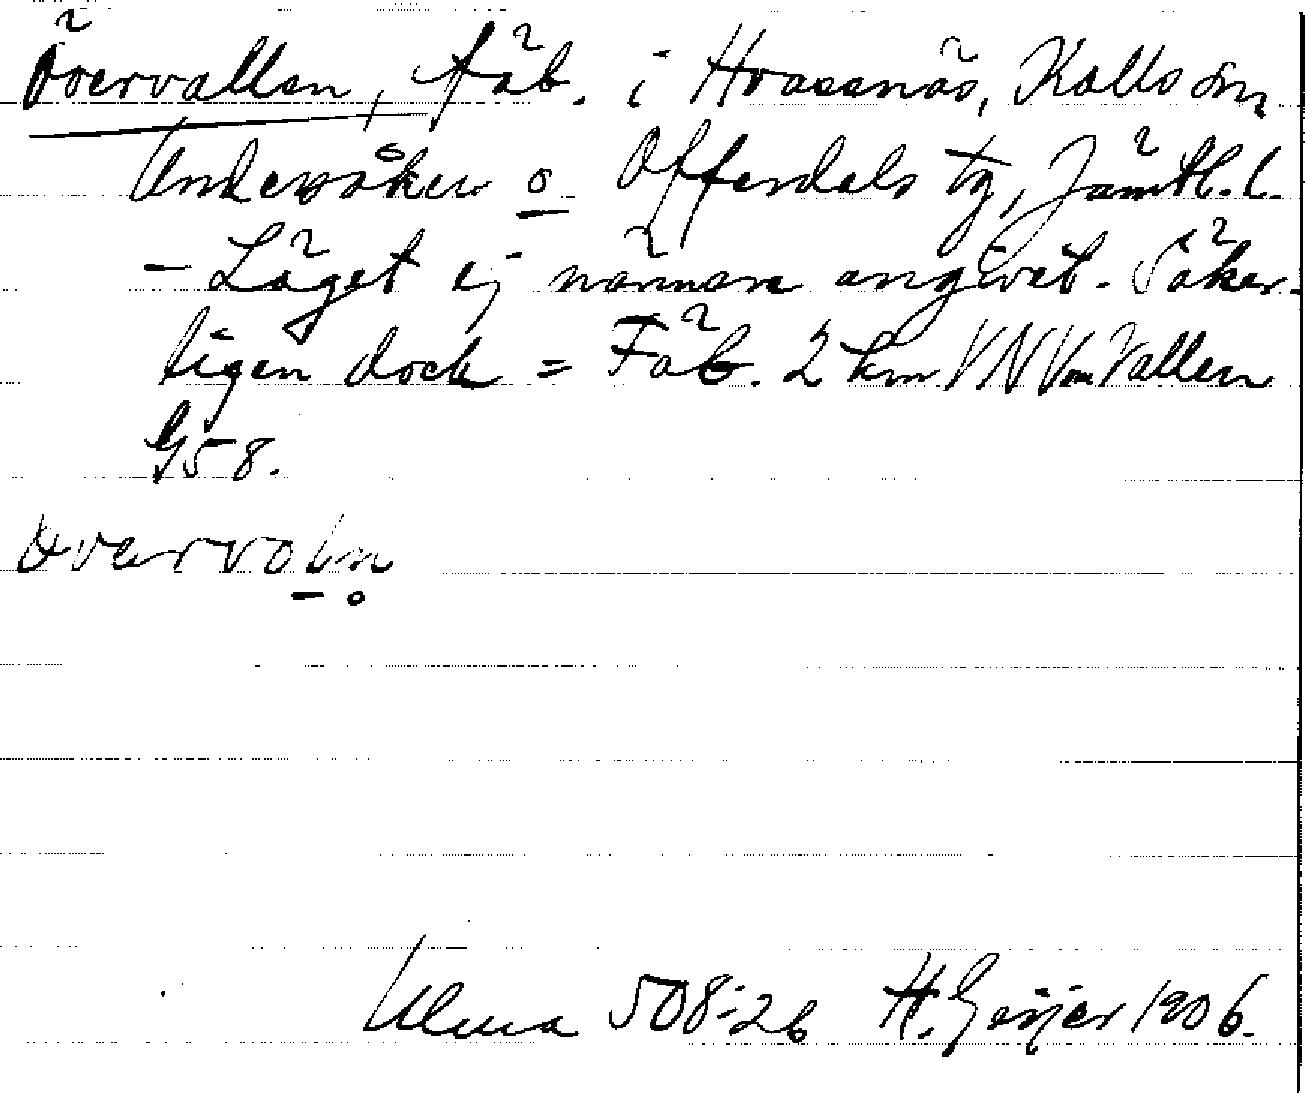 Övervallen, fäb. i Kvarnäs, Kalls sn,
Undersåkers o Offerdals tg, Jämtl. l.
- Läget ej närmare angivet. Säker-
ligen dock = Fäb. 2 km VNV om Vallen
G58.
övervoln
Ulma 508:26 H. Geijer 1906.